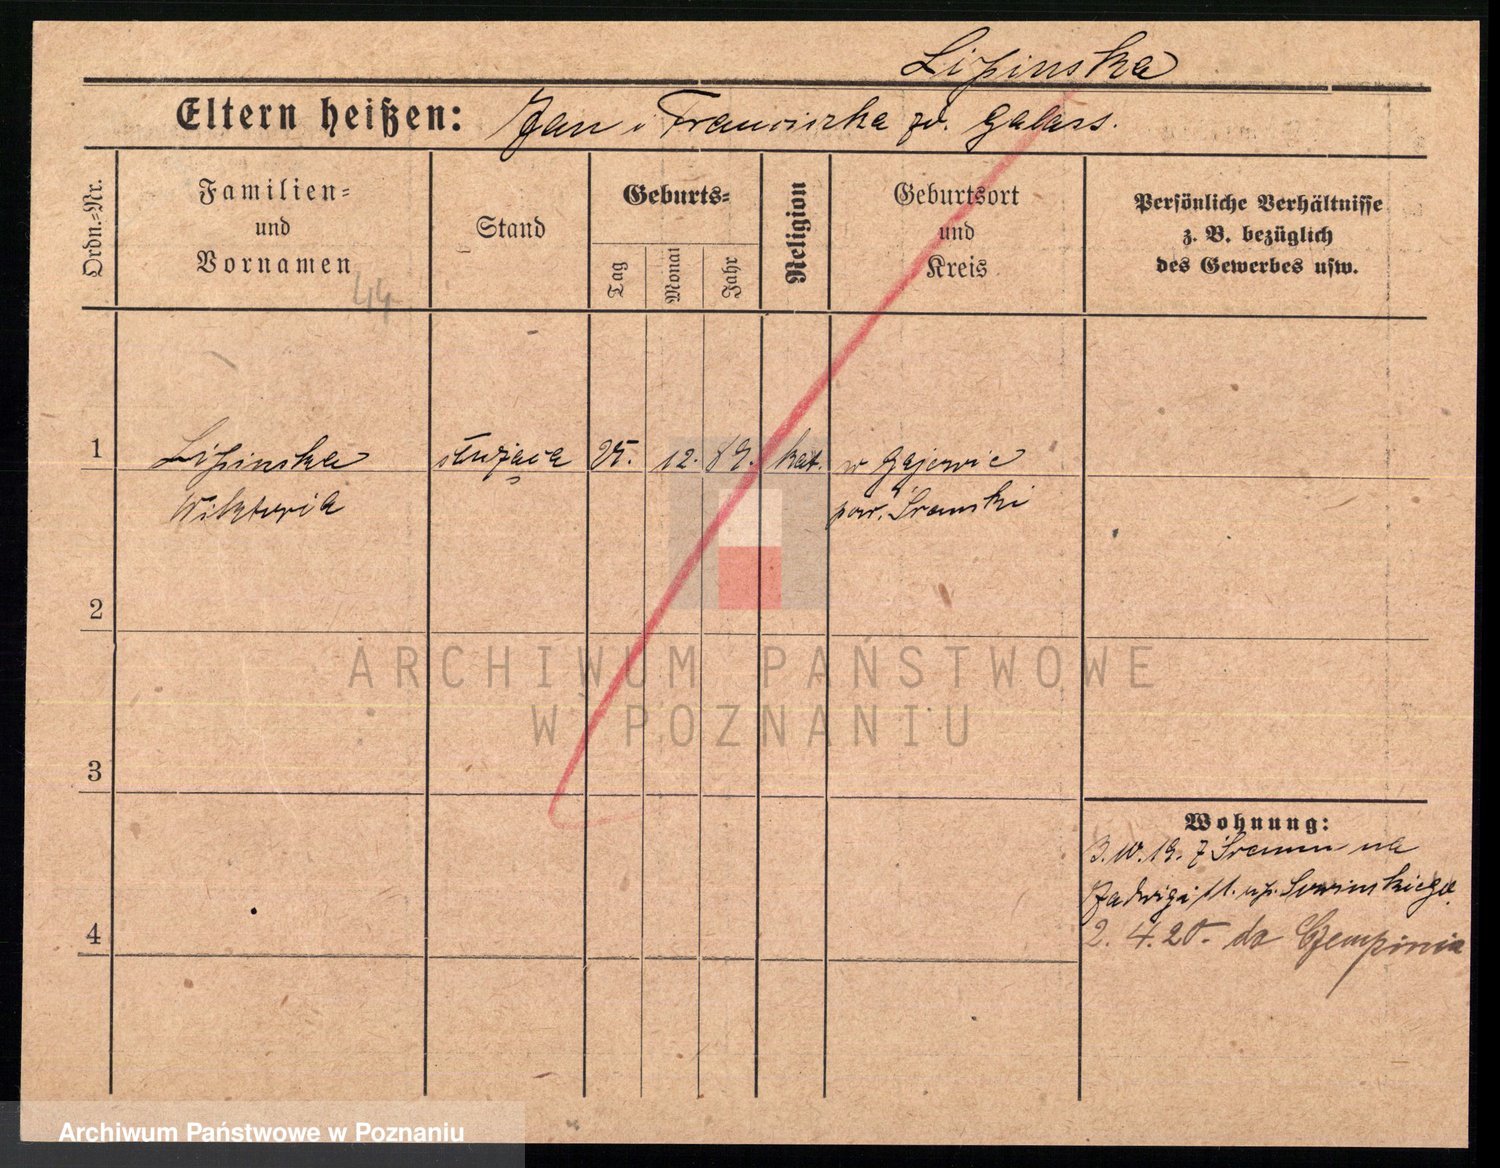 Lipinska
Eltern heißen: Jan i Franciszka zd. Galass.
Ordn.=Nr.
Familien=
und
Vornamen
Stand
Geburts=
Tag
Monat
Jahr
Religion
Geburtsort
und
Kreis
Persönliche Verhältnisse
z. B. bezüglich
des Gewerbes usw.
44
1 Lipinska służąca 25. 12. 89. kat. w Gajewie
Wiktoria pow. Śremski
2
ARCHIWUM PAŃSTWOWE
W POZNANIU
3
Wohnung:
3.10.19. z Śremu na
Jadwigi 11. up.
4
2. 4. 20. do Czempinia
Archiwum Państwowe w Poznaniu